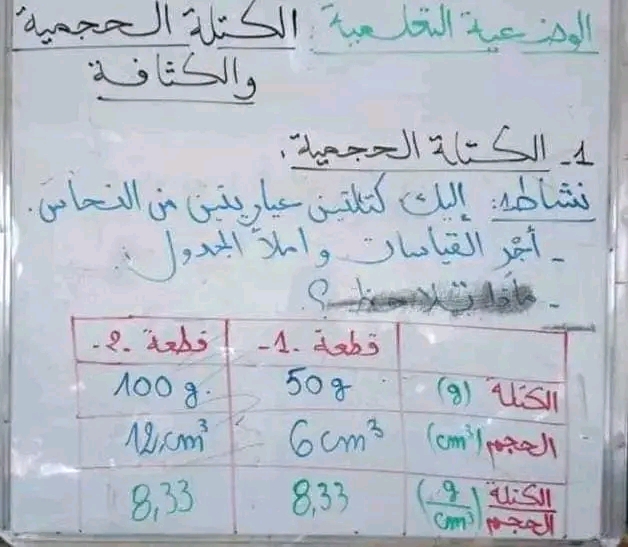 الوضعية التعلمية: الكتلة الحجمية
والكثافة
1- الكتلة الحجمية.
نشاط1: إليك كتلتين عياريتين من النحاس.
- أجر القياسات واملأ الجدول.
- ماذا تلاحظ؟
قطعة -1- قطعة -2-
الكتلة (g) 50g 100g.
الحجم (cm³) 6cm³ 12cm³
الكتلة/الحجم (g/cm³) 8,33 8,33